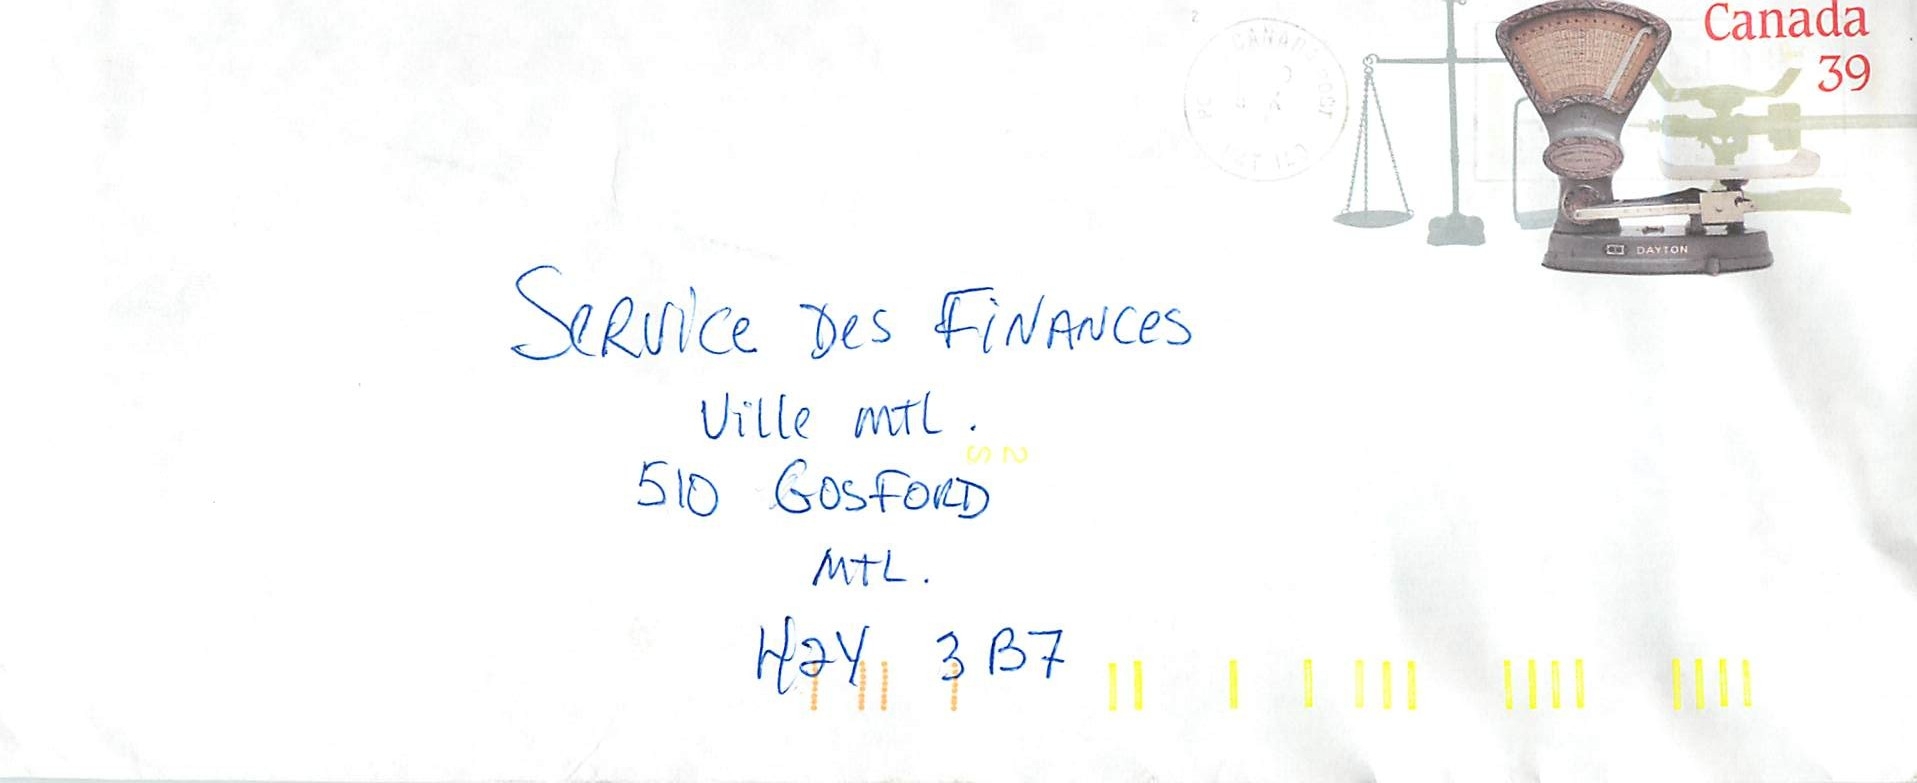 Canada
39
CANADA POST
DAYTON
Service Des Finances
Ville mtl.
2
S
510 GOSFORD
MTL.
H2Y 3B7